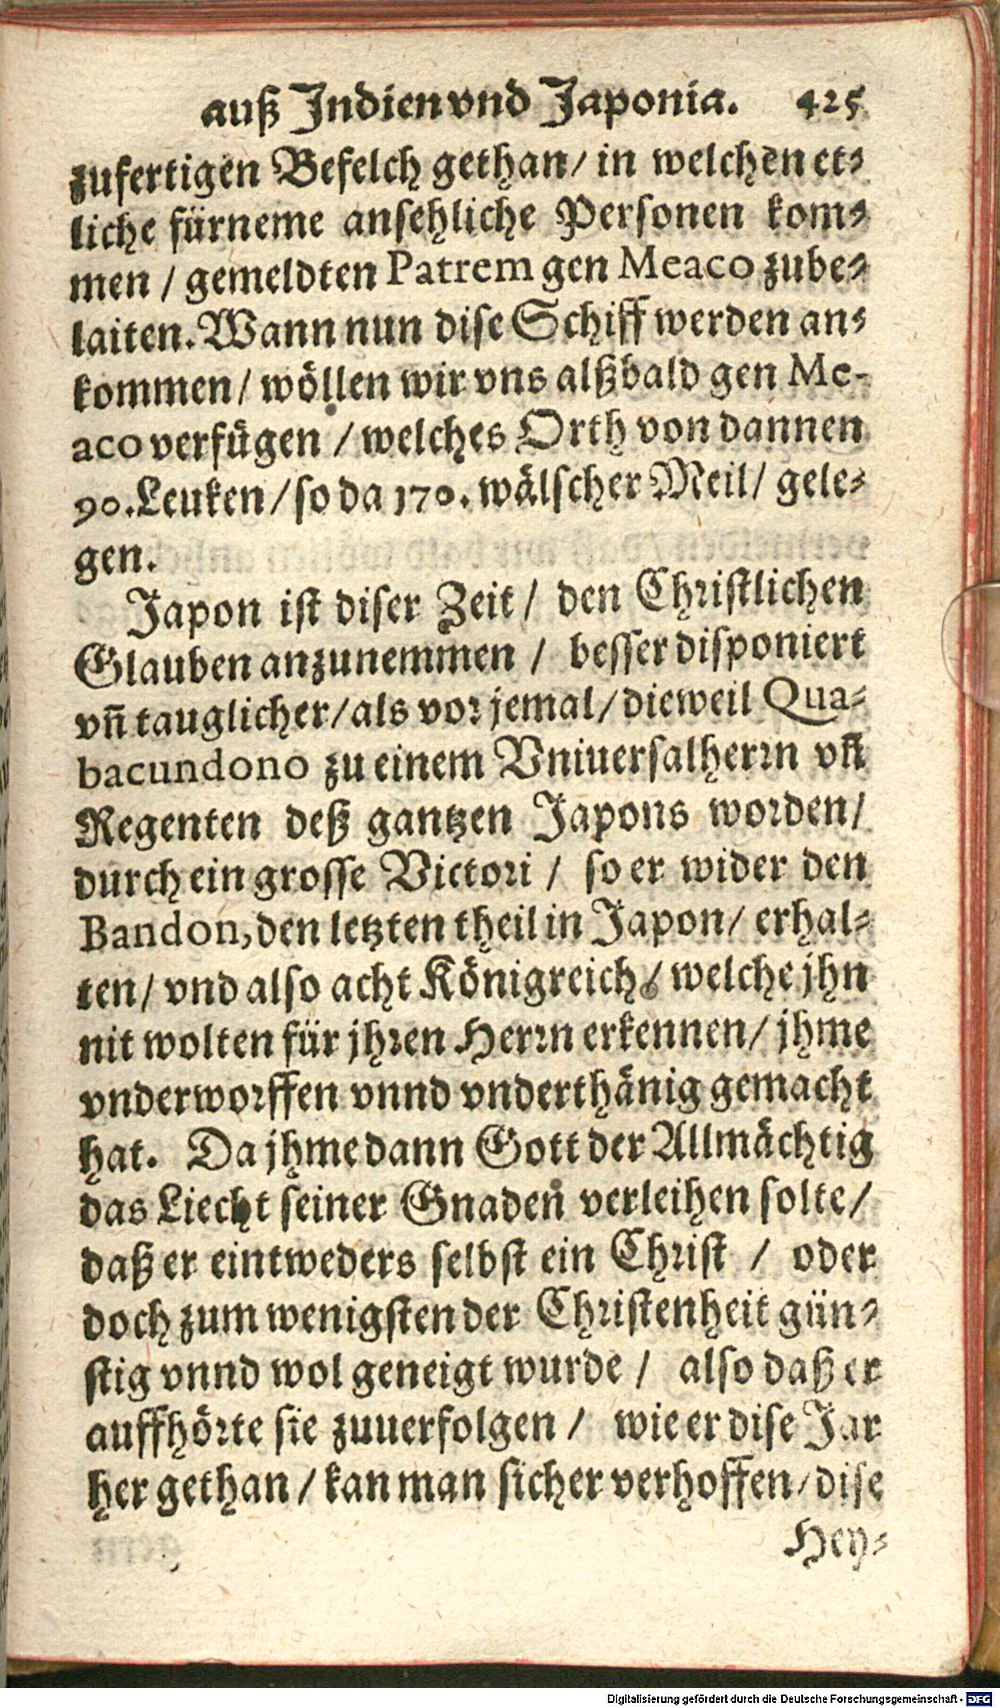 auß Indien vnd Japonia. 425
zufertigen Befelch gethan/ in welchen et⸗
liche fürneme ansehliche Personen kom⸗
men / gemeldten Patrem gen Meaco zube⸗
laiten. Wann nun dise Schiff werden an⸗
kommen/ wöllen wir vns alßbald gen Me-
aco verfügen / welches Orth von dannen
90. Leuken/ so da 170. wälscher Meil/ gele⸗
gen.
Japon ist diser Zeit/ den Christlichen
Glauben anzunemmen / besser disponiert
vñ tauglicher/ als vor jemal/ dieweil Qua⸗
bacundono zu einem Vniuersalherrn vñ
Regenten deß gantzen Japons worden/
durch ein grosse Victori / so er wider den
Bandon, den letzten theil in Japon/ erhal⸗
ten/ vnd also acht Königreich/ welche jhn
nit wolten für jhren Herrn erkennen/ jhme
vnderworffen vnnd vnderthänig gemacht
hat. Da jhme dann Gott der Allmächtig
das Liecht seiner Gnaden verleihen solte/
daß er eintweders selbst ein Christ / oder
doch zum wenigsten der Christenheit gün⸗
stig vnnd wol geneigt wurde / also daß er
auffhörte sie zuuerfolgen / wie er dise Jar
her gethan / kan man sicher verhoffen/ dise
Hey⸗
Digitalisierung gefördert durch die Deutsche Forschungsgemeinschaft - DFG